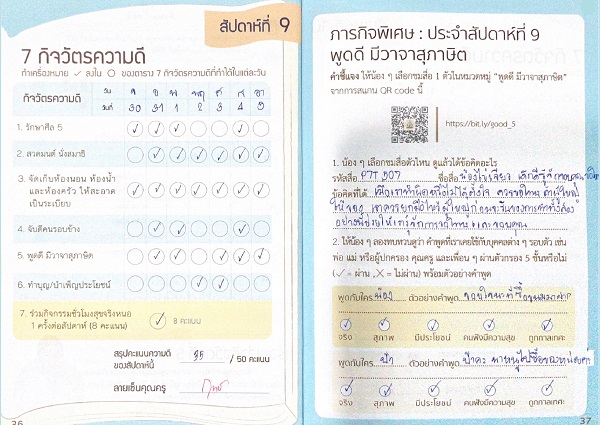 สัปดาห์ที่ 9
7 กิจวัตรความดี
ทำเครื่องหมาย ✓ ลงใน ○ ของตาราง 7 กิจวัตรความดีที่ทำได้ในแต่ละวัน
กิจวัตรความดี
วัน จ อ พ พฤ ศ ส อา
วันที่ 30 31 1 2 3 4 5
1. รักษาศีล 5
2. สวดมนต์ นั่งสมาธิ
3. จัดเก็บห้องนอน ห้องน้ำ
และห้องครัว ให้สะอาด
เป็นระเบียบ
4. จับดีคนรอบข้าง
5. พูดดี มีวาจาสุภาษิต
6. ทำบุญ/บำเพ็ญประโยชน์
7. ร่วมกิจกรรมชั่วโมงสุขจริงหนอ
1 ครั้งต่อสัปดาห์ (8 คะแนน)
✓ 8 คะแนน
สรุปคะแนนความดี
ของสัปดาห์นี้ 35 / 50 คะแนน
ลายเซ็นคุณครู
36
ภารกิจพิเศษ : ประจำสัปดาห์ที่ 9
พูดดี มีวาจาสุภาษิต
คำชี้แจง ให้น้อง ๆ เลือกชมสื่อ 1 ตัวในหมวดหมู่ "พูดดี มีวาจาสุภาษิต"
จากการสแกน QR code นี้
https://bit.ly/good_5
1. น้อง ๆ เลือกชมสื่อตัวไหน ดูแล้วได้ข้อคิดอะไร
รหัสสื่อ PTT 207 ชื่อสื่อ น้องไข่เจียว เด็กดีรู้จัก
ข้อคิดที่ได้ เมื่อเราทำผิดหรือไม่ได้ตั้งใจ ควรขอโทษ
2. ให้น้อง ๆ ลองทบทวนดูว่า คำพูดที่เราเคยใช้กับบุคคลต่าง ๆ รอบตัว เช่น
พ่อ แม่ หรือผู้ปกครอง คุณครู และเพื่อน ๆ ผ่านตัวกรอง 5 ชั้นหรือไม่
(✓ = ผ่าน ,X = ไม่ผ่าน) พร้อมตัวอย่างคำพูด
พูดกับใคร น้อง ตัวอย่างคำพูด ขอโทษนะ
จริง สุภาพ มีประโยชน์ คนฟังมีความสุข ถูกกาลเทศะ
พูดกับใคร ป้า ตัวอย่างคำพูด ป้าคะ พาหนูไปซื้อของหน่อยค่ะ
จริง สุภาพ มีประโยชน์ คนฟังมีความสุข ถูกกาลเทศะ
37